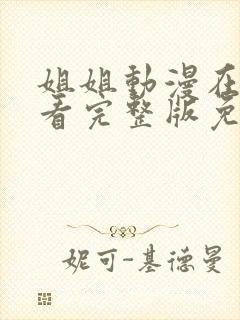 姐姐動漫在
看完整版免
妮可-基德曼